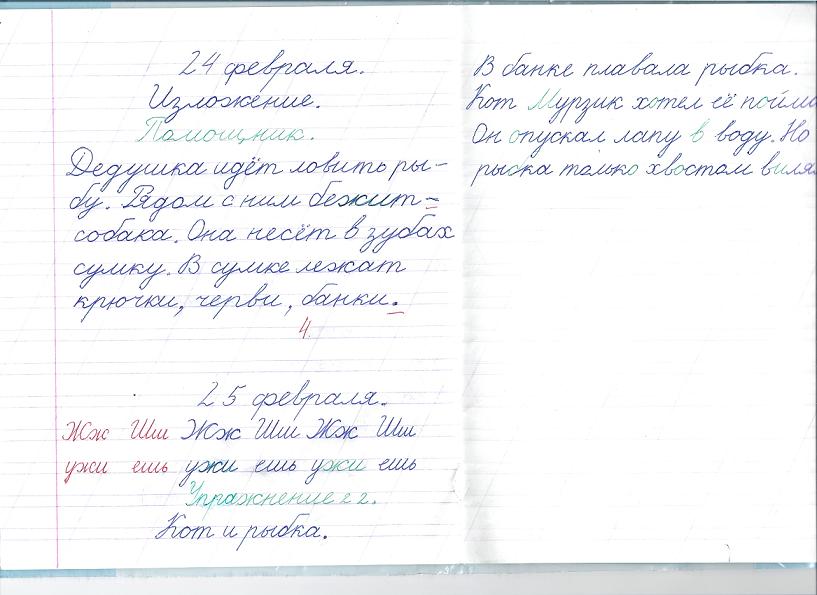 24 февраля.
Изложение.
Помощник.
Дедушка идёт ловить ры-
бу. Рядом с ним бежит-
собака. Она несёт в зубах
сумку. В сумке лежат
крючки, черви, банки.
4.
25 февраля.
Жж Шш Жж Шш Жж Шш
ужи ешь ужи ешь ужи ешь
Упражнение 22.
Кот и рыбка.
В банке плавала рыбка.
Кот Мурзик хотел её пойма
Он опускал лапу в воду. Но
рыбка только хвостом виля